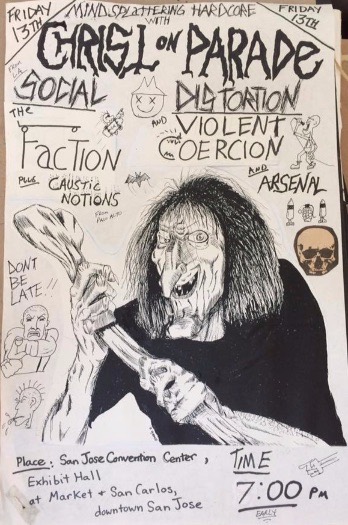 FRIDAY 13TH
MINDSPLATTERING HARDCORE
FRIDAY 13TH
WITH
CHRIST ON PARADE
FROM L.A.
SOCIAL DISTORTION
THE FACTION
AND
VIOLENT COERCION
PLUS CAUSTIC NOTIONS
FROM PALO ALTO
AND
ARSENAL
DON'T
BE
LATE!!
Place: San Jose Convention Center,
Exhibit Hall
at Market & San Carlos,
downtown San Jose
TIME
7:00 PM
EARLY